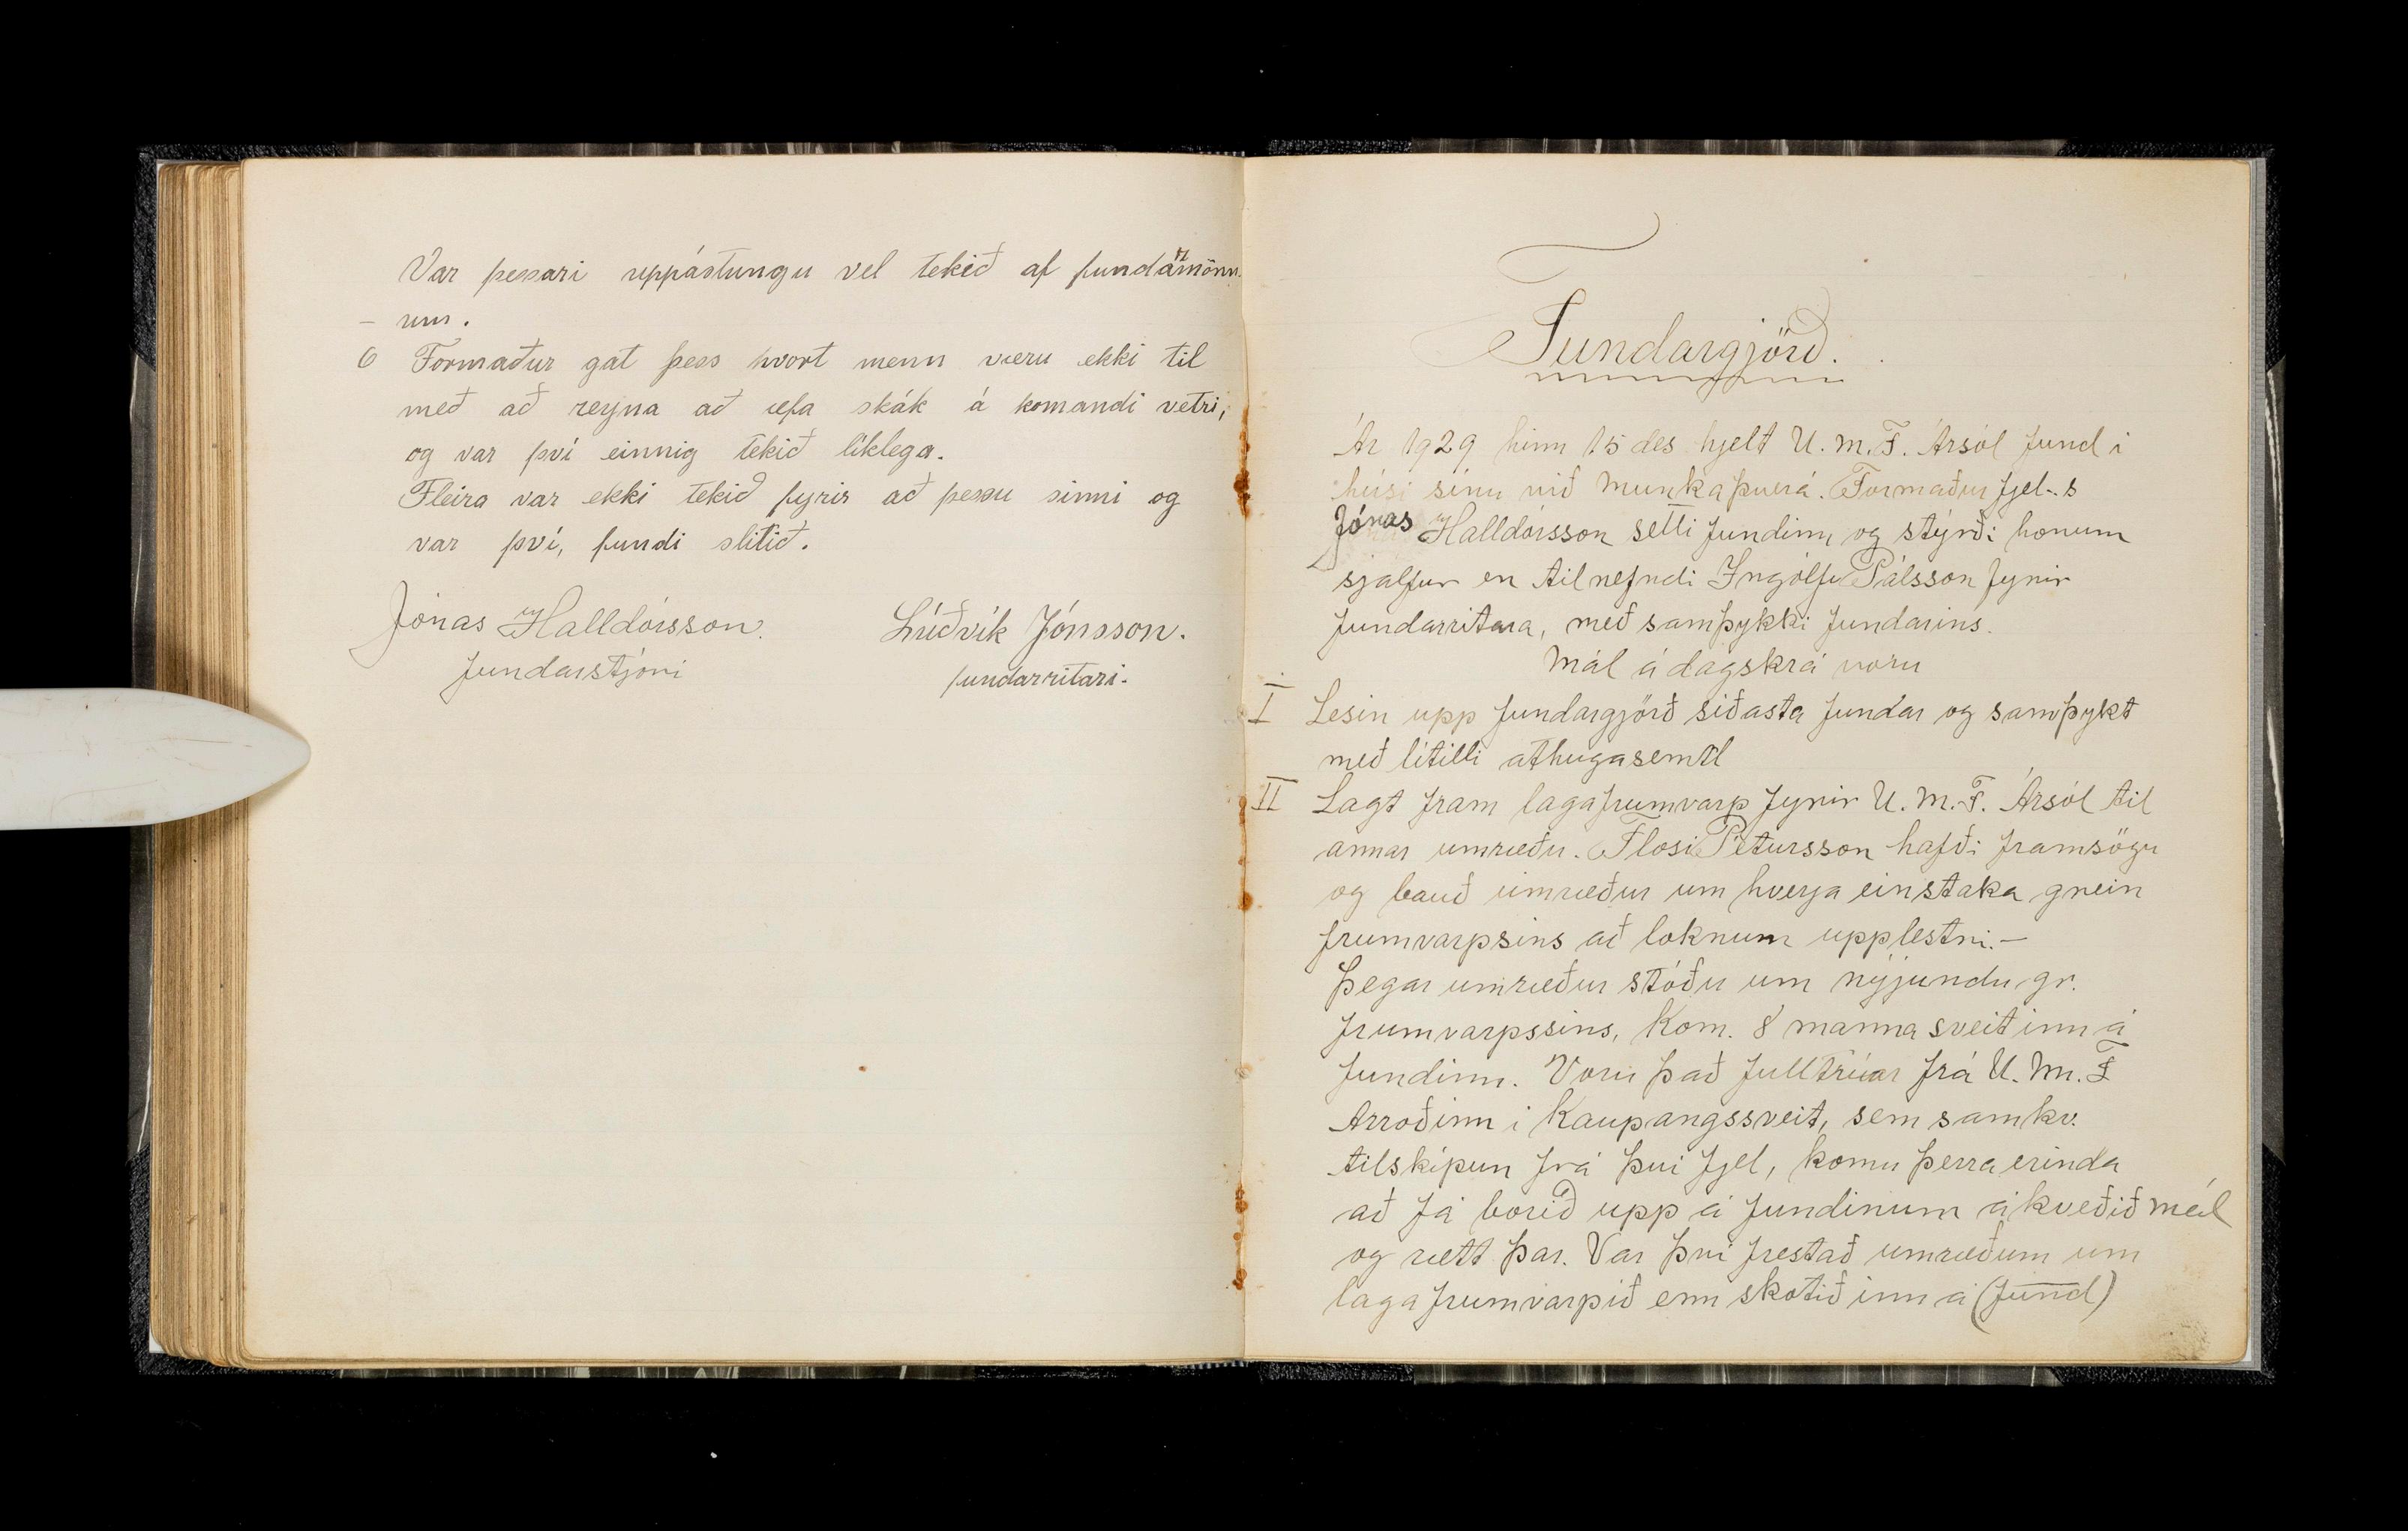 Var þessari uppástungu vel tekið af fundarmönn-
- um.
6 Formaður gat þess hvort menn væru ekki til
með að reyna að æfa skák á komandi vetri,
og var því einnig tekið líklega.
Fleira var ekki tekið fyrir að þessu sinni og
var því, fundi slitið.
Jónas Halldórsson. Lúðvík Jónsson.
fundarstjóri fundarritari.
Fundargjörð.
Ár 1929 hinn 15 des hjelt U.M.F. Ársól fund í
húsi sínu við Munkaþverá. Formaður fjel-s
Jónas Halldórsson setti fundinn og stýrði honum
sjálfur en tilnefndi Ingólf Pálsson fyrir
fundarritara, með samþykki fundarins.
Mál á dagskrá voru
I Lesin upp fundargjörð síðasta fundar og samþykt
með lítilli athugasemd
II Lagt fram lagafrumvarp fyrir U.M.F. Ársól til
annar umræðu. Flosi Pétursson hafði framsögu
og bauð umræður um hverja einstaka grein
frumvarpsins að loknum upplestri.-
Þegar umræður stóðu um nýjundu gr.
frumvarpssins, kom. 8 manna sveit inn á
fundinn. Voru það fulltrúar frá U.M.F
Arroðinn i Kaupangssveit, sem samkv.
tilskipun frá því fjel, komu þerra erinda
að fá borið upp á fundinum ákveðið mál
og rætt þar. Var því frestað umræðum um
lagafrumvarpið enn skotið inn á (fund)